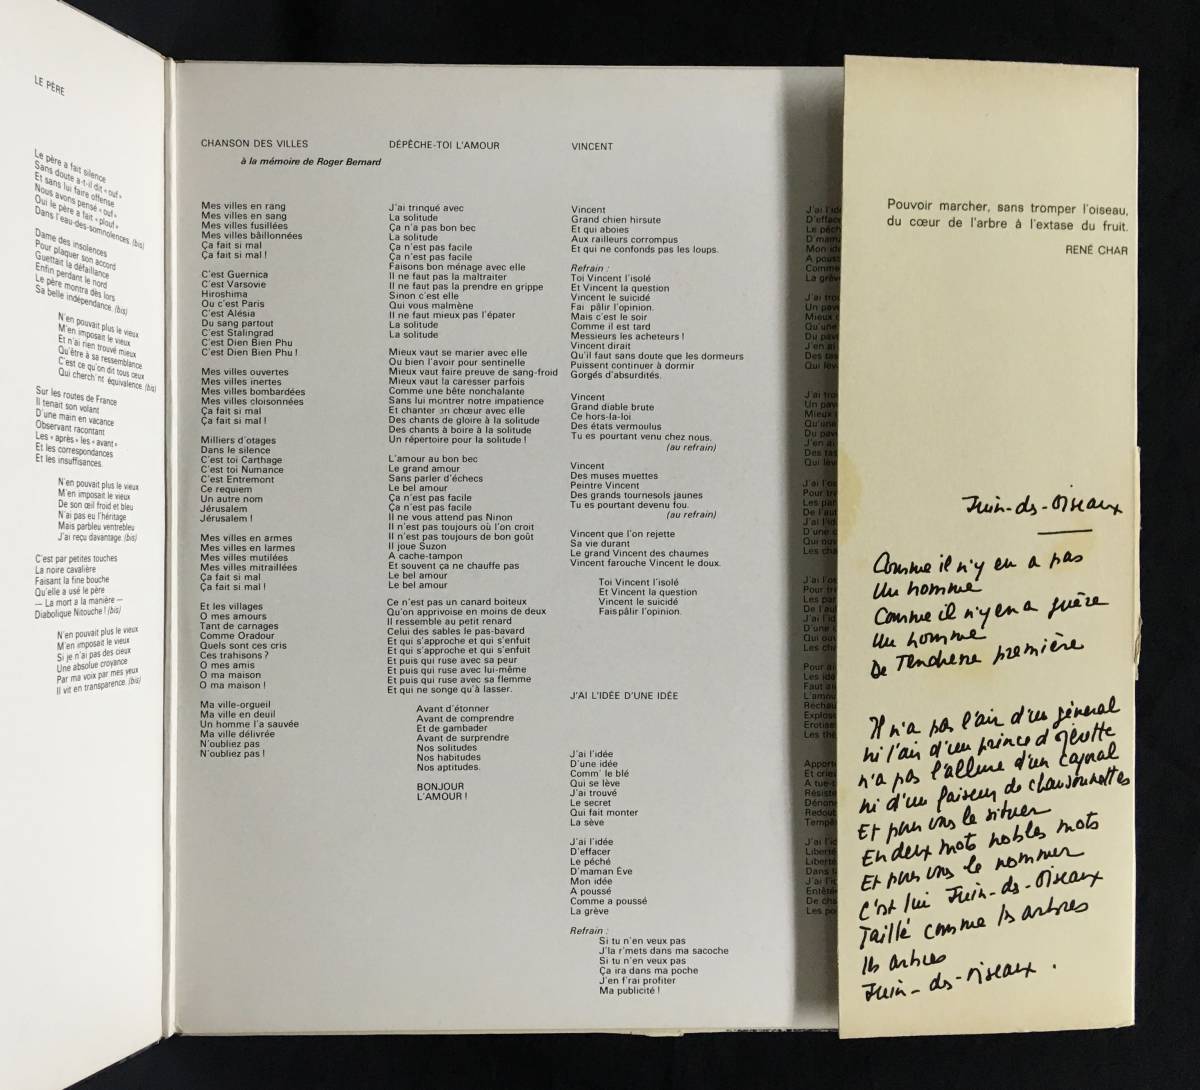 LE PÈRE
Le père a fait silence
Sans doute a-t-il dit « ouf »
Et sans lui faire offense
Nous avons pensé « ouf »
Oui le père a fait « plouf »
Dans l'eau-des-somnolences. (bis)
Dame des insolences
Pour plaquer son accord
Guettait la défaillance
Enfin perdant le nord
Le père montra dès lors
Sa belle indépendance. (bis)
N'en pouvait plus le vieux
M'en imposait le vieux
Et n'ai rien trouvé mieux
Qu'être à sa ressemblance
C'est ce qu'on dit tous ceux
Qui cherch'nt équivalence. (bis)
Sur les routes de France
Il tenait son volant
D'une main en vacance
Observant racontant
Les « après » les « avant »
Et les correspondances
Et les insuffisances.
N'en pouvait plus le vieux
M'en imposait le vieux
De son œil froid et bleu
N'ai pas eu l'héritage
Mais parbleu ventrebleu
J'ai reçu davantage. (bis)
C'est par petites touches
La noire cavalière
Faisant la fine bouche
Qu'elle a usé le père
— La mort a la manière —
Diabolique Nitouche ! (bis)
N'en pouvait plus le vieux
M'en imposait le vieux
Si je n'ai pas des cieux
Une absolue croyance
Par ma voix par mes yeux
Il vit en transparence. (bis)
CHANSON DES VILLES
à la mémoire de Roger Bernard
Mes villes en rang
Mes villes en sang
Mes villes fusillées
Mes villes bâillonnées
Ça fait si mal
Ça fait si mal !
C'est Guernica
C'est Varsovie
Hiroshima
Ou c'est Paris
C'est Alésia
Du sang partout
C'est Stalingrad
C'est Dien Bien Phu
C'est Dien Bien Phu !
Mes villes ouvertes
Mes villes inertes
Mes villes bombardées
Mes villes cloisonnées
Ça fait si mal
Ça fait si mal !
Milliers d'otages
Dans le silence
C'est toi Carthage
C'est toi Numance
C'est Entremont
Ce requiem
Un autre nom
Jérusalem
Jérusalem !
Mes villes en armes
Mes villes en larmes
Mes villes mutilées
Mes villes mitraillées
Ça fait si mal
Ça fait si mal !
Et les villages
O mes amours
Tant de carnages
Comme Oradour
Quels sont ces cris
Ces trahisons ?
O mes amis
O ma maison
O ma maison !
Ma ville-orgueil
Ma ville en deuil
Un homme l'a sauvée
Ma ville délivrée
N'oubliez pas
N'oubliez pas !
DÉPÊCHE-TOI L'AMOUR
J'ai trinqué avec
La solitude
Ça n'a pas bon bec
La solitude
Ça n'est pas facile
Ça n'est pas facile
Faisons bon ménage avec elle
Il ne faut pas la maltraiter
Il ne faut pas la prendre en grippe
Sinon c'est elle
Qui vous malmène
Il ne faut mieux pas l'épater
La solitude
La solitude
Mieux vaut se marier avec elle
Ou bien l'avoir pour sentinelle
Mieux vaut faire preuve de sang-froid
Mieux vaut la caresser parfois
Comme une bête nonchalante
Sans lui montrer notre impatience
Et chanter en chœur avec elle
Des chants de gloire à la solitude
Des chants à boire à la solitude
Un répertoire pour la solitude !
L'amour au bon bec
Le grand amour
Sans parler d'échecs
Le bel amour
Ça n'est pas facile
Ça n'est pas facile
Il ne vous attend pas Ninon
Il n'est pas toujours où l'on croit
Il n'est pas toujours de bon goût
Il joue Suzon
A cache-tampon
Et souvent ça ne chauffe pas
Le bel amour
Le bel amour
Ce n'est pas un canard boiteux
Qu'on apprivoise en moins de deux
Il ressemble au petit renard
Celui des sables le pas-bavard
Et qui s'approche et qui s'enfuit
Et qui s'approche et qui s'enfuit
Et puis qui ruse avec sa peur
Et puis qui ruse avec lui-même
Et puis qui ruse avec sa flemme
Et qui ne songe qu'à lasser.
Avant d'étonner
Avant de comprendre
Et de gambader
Avant de surprendre
Nos solitudes
Nos habitudes
Nos aptitudes.
BONJOUR
L'AMOUR !
VINCENT
Vincent
Grand chien hirsute
Et qui aboies
Aux railleurs corrompus
Et qui ne confonds pas les loups.
Refrain :
Toi Vincent l'isolé
Et Vincent la question
Vincent le suicidé
Fai pâlir l'opinion.
Mais c'est le soir
Comme il est tard
Messieurs les acheteurs !
Vincent dirait
Qu'il faut sans doute que les dormeurs
Puissent continuer à dormir
Gorgés d'absurdités.
Vincent
Grand diable brute
Ce hors-la-loi
Des états vermoulus
Tu es pourtant venu chez nous.
(au refrain)
Vincent
Des muses muettes
Peintre Vincent
Des grands tournesols jaunes
Tu es pourtant devenu fou.
(au refrain)
Vincent que l'on rejette
Sa vie durant
Le grand Vincent des chaumes
Vincent farouche Vincent le doux.
Toi Vincent l'isolé
Et Vincent la question
Vincent le suicidé
Fais pâlir l'opinion.
J'AI L'IDÉE D'UNE IDÉE
J'ai l'idée
D'une idée
Comm' le blé
Qui se lève
J'ai trouvé
Le secret
Qui fait monter
La sève
J'ai l'idée
D'effacer
Le péché
D'maman Ève
Mon idée
A poussé
Comme a poussé
La grève
Refrain :
Si tu n'en veux pas
J'la r'mets dans ma sacoche
Si tu n'en veux pas
Ça ira dans ma poche
J'en f'rai profiter
Ma publicité !
Pouvoir marcher, sans tromper l'oiseau,
du cœur de l'arbre à l'extase du fruit.
RENÉ CHAR
Juin-des-Oiseaux
Comme il n'y en a pas
Un homme
Comme il n'y en a guère
Un homme
De Tendresse première
Il n'a pas l'air d'un général
ni l'air d'un prince d'opérette
n'a pas l'allure d'un caporal
ni d'un faiseur de chansonnettes
Et pour vous le situer
En deux mots nobles mots
Et pour vous le nommer
C'est lui Juin-des-Oiseaux
Taillé comme les arbres
les arbres
Juin-des-Oiseaux.